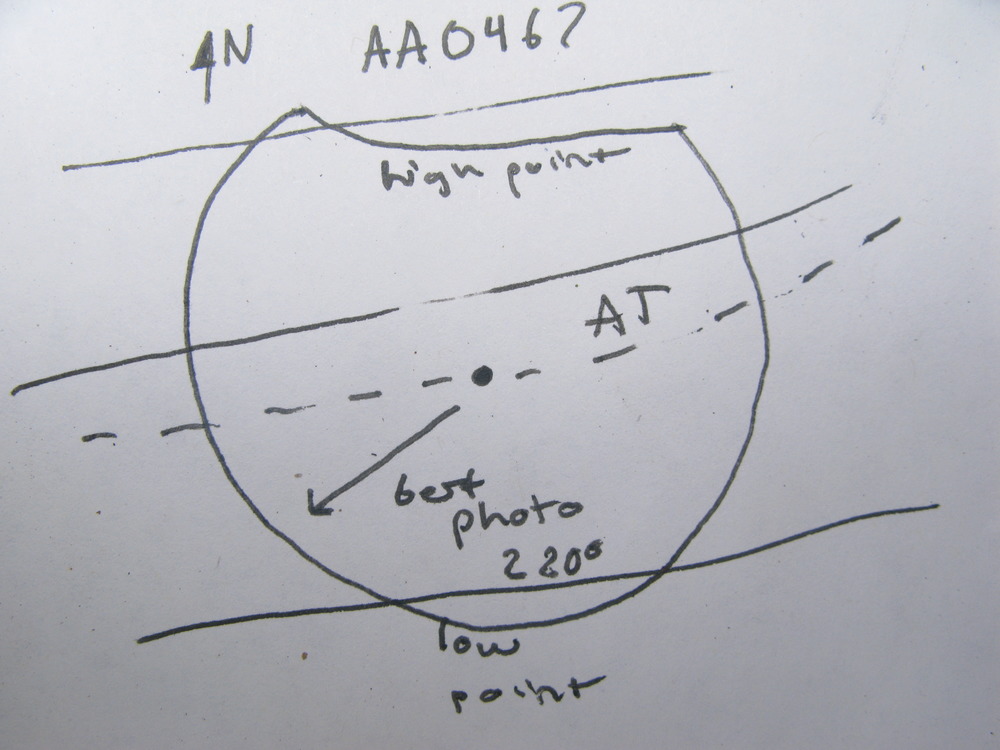 N AA0467
high point
AT
best
photo
220°
low
point